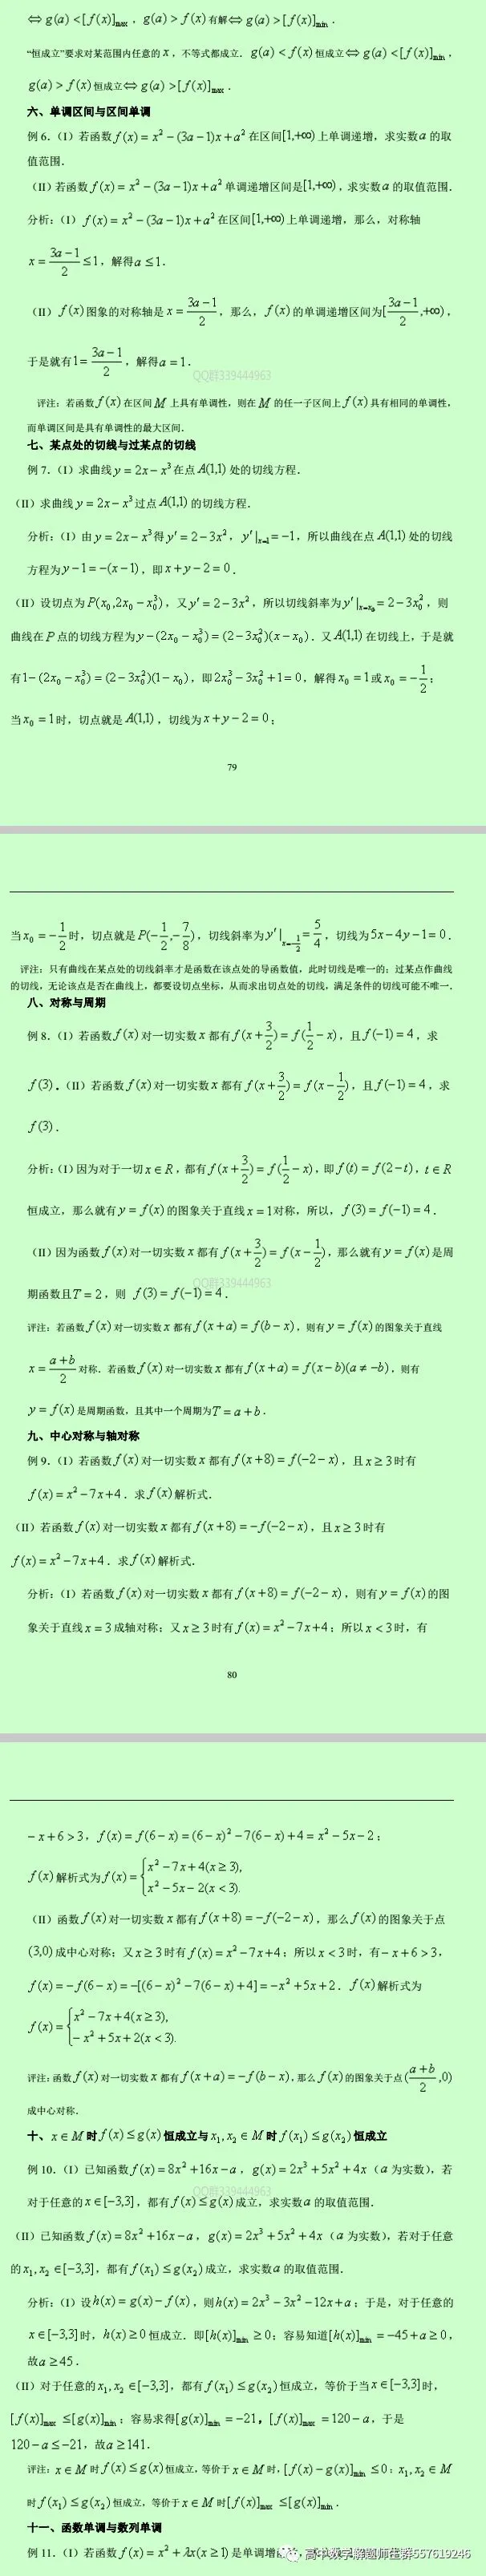 ⇔ g(a) < [f(x)]max，g(a) > f(x) 有解⇔ g(a) > [f(x)]min．
“恒成立”要求对某范围内任意的 x，不等式都成立．g(a) < f(x) 恒成立⇔ g(a) < [f(x)]min，
g(a) > f(x) 恒成立⇔ g(a) > [f(x)]max．
六、单调区间与区间单调
例 6．（I）若函数 f(x) = x² − (3a−1)x + a² 在区间[1,+∞) 上单调递增，求实数 a 的取
值范围．
（II）若函数 f(x) = x² − (3a−1)x + a² 单调递增区间是[1,+∞)，求实数 a 的取值范围．
分析：（I）f(x) = x² − (3a−1)x + a² 在区间[1,+∞) 上单调递增，那么，对称轴
x = (3a−1)/2 ≤ 1，解得 a ≤ 1．
（II）f(x) 图象的对称轴是 x = (3a−1)/2，那么，f(x) 的单调递增区间为[(3a−1)/2,+∞)，
于是就有 1 = (3a−1)/2，解得 a = 1．
QQ群339444963
评注：若函数 f(x) 在区间 M 上具有单调性，则在 M 的任一子区间上 f(x) 具有相同的单调性，
而单调区间是具有单调性的最大区间．
七、某点处的切线与过某点的切线
例 7．（I）求曲线 y = 2x − x³ 在点 A(1,1) 处的切线方程．
（II）求曲线 y = 2x − x³ 过点 A(1,1) 的切线方程．
分析：（I）由 y = 2x − x³ 得 y′ = 2 − 3x²，y′|x=1 = −1，所以曲线在点 A(1,1) 处的切线
方程为 y − 1 = −(x − 1)，即 x + y − 2 = 0．
（II）设切点为 P(x₀, 2x₀ − x₀³)，又 y′ = 2 − 3x²，所以切线斜率为 y′|x=x₀ = 2 − 3x₀²，则
曲线在 P 点的切线方程为 y − (2x₀ − x₀³) = (2 − 3x₀²)(x − x₀)．又 A(1,1) 在切线上，于是就
有 1 − (2x₀ − x₀³) = (2 − 3x₀²)(1 − x₀)，即 2x₀³ − 3x₀² + 1 = 0，解得 x₀ = 1 或 x₀ = −1/2；
当 x₀ = 1 时，切点就是 A(1,1)，切线为 x + y − 2 = 0；
79
当 x₀ = −1/2 时，切点就是 P(−1/2, −7/8)，切线斜率为 y′|x=−1/2 = 5/4，切线为 5x − 4y − 1 = 0．
评注：只有曲线在某点处的切线斜率才是函数在该点处的导函数值，此时切线是唯一的；过某点作曲线
的切线，无论该点是否在曲线上，都要设切点坐标，从而求出切点处的切线，满足条件的切线可能不唯一．
八、对称与周期
例 8．（I）若函数 f(x) 对一切实数 x 都有 f(x + 3/2) = f(1/2 − x)，且 f(−1) = 4，求
f(3)．（II）若函数 f(x) 对一切实数 x 都有 f(x + 3/2) = f(x − 1/2)，且 f(−1) = 4，求
f(3)．
分析：（I）因为对于一切 x ∈ R，都有 f(x + 3/2) = f(1/2 − x)，即 f(t) = f(2 − t)，t ∈ R
恒成立，那么就有 y = f(x) 的图象关于直线 x = 1 对称，所以，f(3) = f(−1) = 4．
（II）因为函数 f(x) 对一切实数 x 都有 f(x + 3/2) = f(x − 1/2)，那么就有 y = f(x) 是周
QQ群339444963
期函数且 T = 2，则 f(3) = f(−1) = 4．
评注：若函数 f(x) 对一切实数 x 都有 f(x + a) = f(b − x)，则有 y = f(x) 的图象关于直线
x = (a+b)/2 对称．若函数 f(x) 对一切实数 x 都有 f(x + a) = f(x − b)(a ≠ −b)，则有
y = f(x) 是周期函数，且其中一个周期为 T = a + b．
九、中心对称与轴对称
例 9．（I）若函数 f(x) 对一切实数 x 都有 f(x + 8) = f(−2 − x)，且 x ≥ 3 时有
f(x) = x² − 7x + 4．求 f(x) 解析式．
（II）若函数 f(x) 对一切实数 x 都有 f(x + 8) = −f(−2 − x)，且 x ≥ 3 时有
f(x) = x² − 7x + 4．求 f(x) 解析式．
分析：（I）若函数 f(x) 对一切实数 x 都有 f(x + 8) = f(−2 − x)，则有 y = f(x) 的图
象关于直线 x = 3 成轴对称；又 x ≥ 3 时有 f(x) = x² − 7x + 4；所以 x < 3 时，有
80
−x + 6 > 3，f(x) = f(6 − x) = (6 − x)² − 7(6 − x) + 4 = x² − 5x − 2；
f(x) 解析式为 f(x) = { x² − 7x + 4(x ≥ 3),
x² − 5x − 2(x < 3).
（II）函数 f(x) 对一切实数 x 都有 f(x + 8) = −f(−2 − x)，那么 f(x) 的图象关于点
(3,0) 成中心对称；又 x ≥ 3 时有 f(x) = x² − 7x + 4；所以 x < 3 时，有 −x + 6 > 3，
f(x) = −f(6 − x) = −[(6 − x)² − 7(6 − x) + 4] = −x² + 5x + 2．f(x) 解析式为
f(x) = { x² − 7x + 4(x ≥ 3),
− x² + 5x + 2(x < 3).
评注：函数 f(x) 对一切实数 x 都有 f(x + a) = −f(b − x)，那么 f(x) 的图象关于点((a+b)/2, 0)
成中心对称．
十、x ∈ M 时 f(x) ≤ g(x) 恒成立与 x₁, x₂ ∈ M 时 f(x₁) ≤ g(x₂) 恒成立
例 10．（I）已知函数 f(x) = 8x² + 16x − a，g(x) = 2x³ + 5x² + 4x（a 为实数），若
QQ群339444963
对于任意的 x ∈ [−3,3]，都有 f(x) ≤ g(x) 成立，求实数 a 的取值范围．
（II）已知函数 f(x) = 8x² + 16x − a，g(x) = 2x³ + 5x² + 4x（a 为实数），若对于任意
的 x₁, x₂ ∈ [−3,3]，都有 f(x₁) ≤ g(x₂) 成立，求实数 a 的取值范围．
分析：（I）设 h(x) = g(x) − f(x)，则 h(x) = 2x³ − 3x² − 12x + a；于是，对于任意的
x ∈ [−3,3] 时，h(x) ≥ 0 恒成立．即[h(x)]min ≥ 0；容易知道[h(x)]min = −45 + a ≥ 0，
故 a ≥ 45．
（II）对于任意的 x₁, x₂ ∈ [−3,3]，都有 f(x₁) ≤ g(x₂) 恒成立，等价于当 x ∈ [−3,3] 时，
[f(x)]max ≤ [g(x)]min；容易求得[g(x)]min = −21，[f(x)]max = 120 − a，于是
120 − a ≤ −21，故 a ≥ 141．
评注：x ∈ M 时 f(x) ≤ g(x) 恒成立，等价于 x ∈ M 时，[f(x) − g(x)]min ≤ 0；x₁, x₂ ∈ M
时 f(x₁) ≤ g(x₂) 恒成立，等价于 x ∈ M 时[f(x)]max ≤ [g(x)]min．
十一、函数单调与数列单调
例 11．（I）若函数 f(x) = x² + λx(x ≥ 1) 是单调增函
高中数学解题师生群557619246